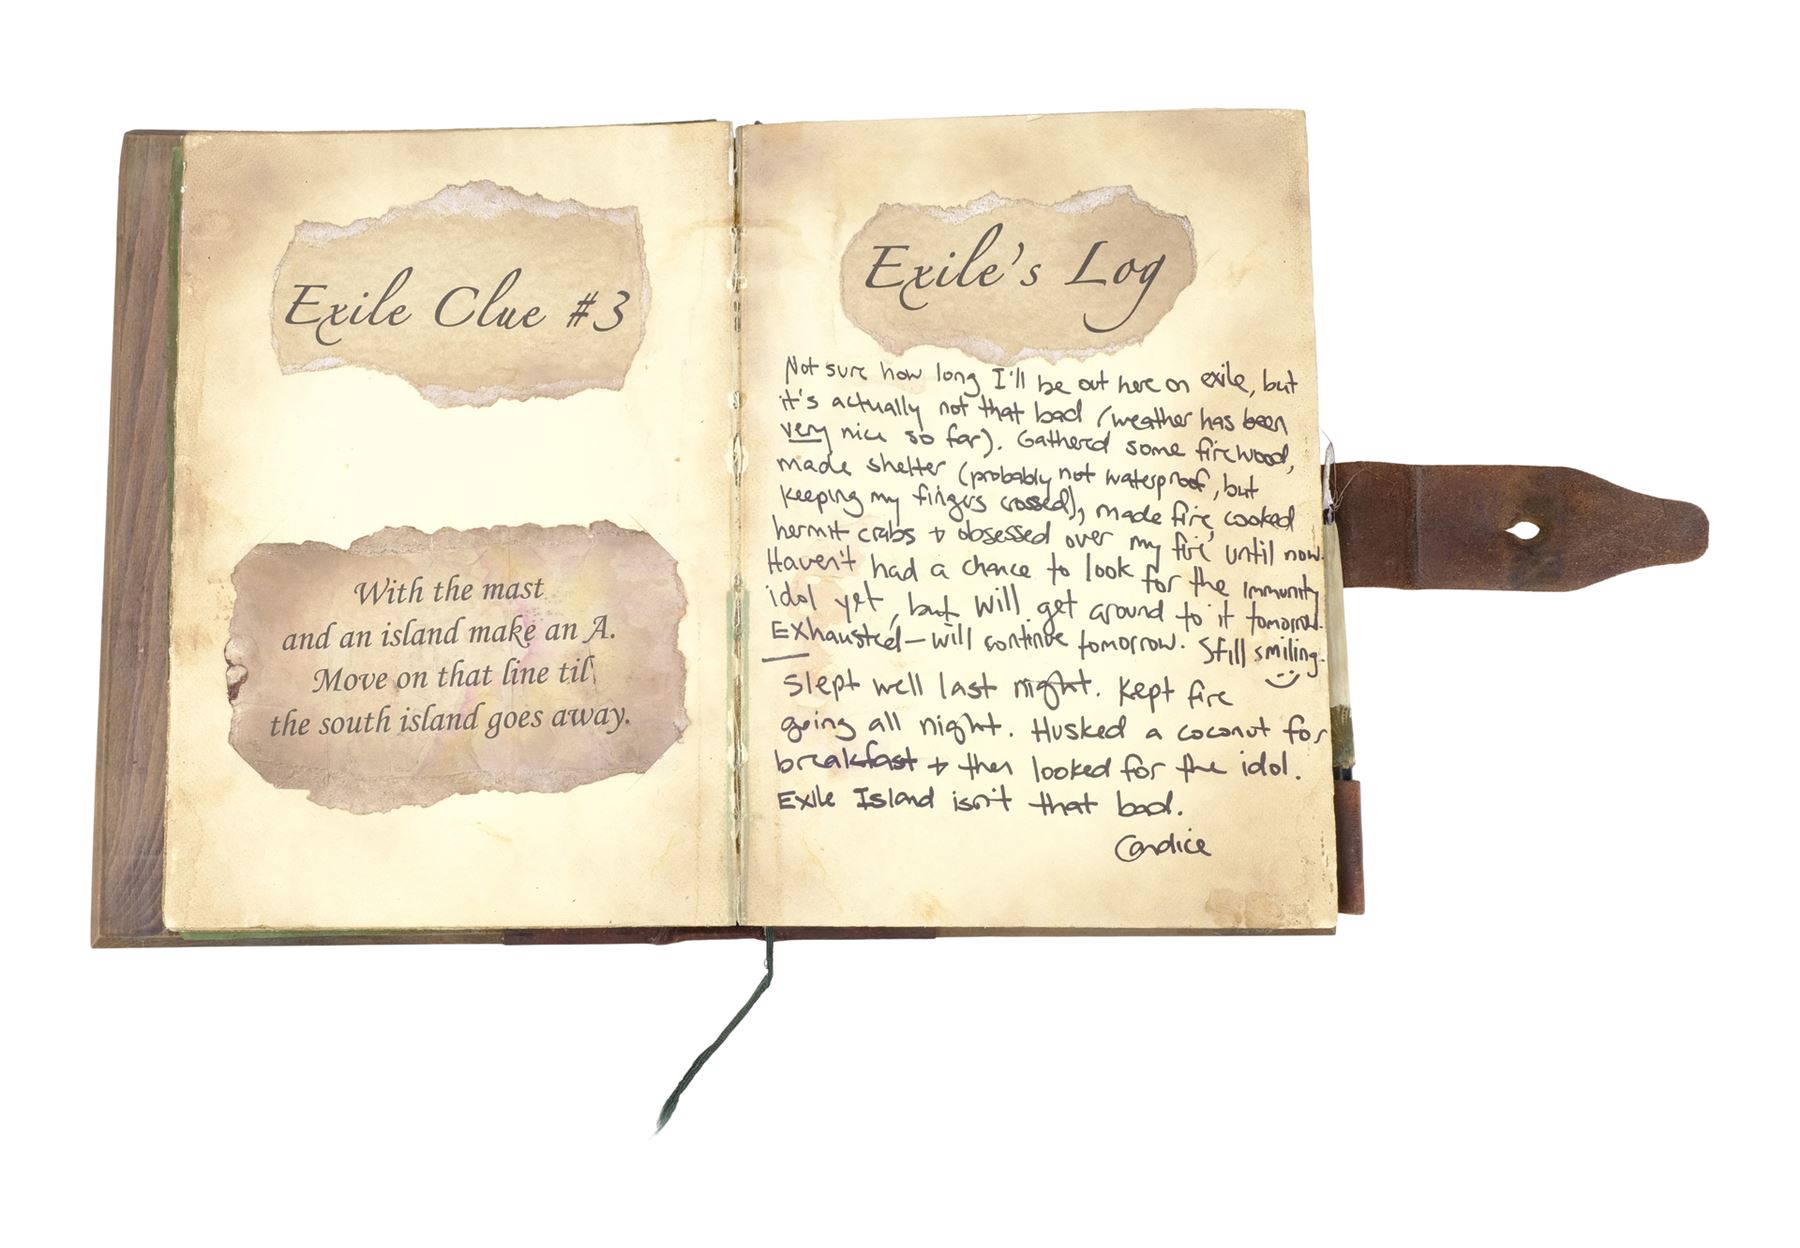 Exile Clue #3
With the mast
and an island make an A.
Move on that line til
the south island goes away.
Exile's Log
Not sure how long I'll be out here on exile, but
it's actually not that bad (weather has been
very nice so far). Gathered some firewood,
made shelter (probably not waterproof, but
keeping my fingers crossed), made fire, cooked
hermit crabs + obsessed over my fire until now.
Haven't had a chance to look for the immunity
idol yet, but will get around to it tomorrow.
Exhausted—will continue tomorrow. Still smiling.
Slept well last night. Kept fire
going all night. Husked a coconut for
breakfast + then looked for the idol.
Exile Island isn't that bad.
Candice